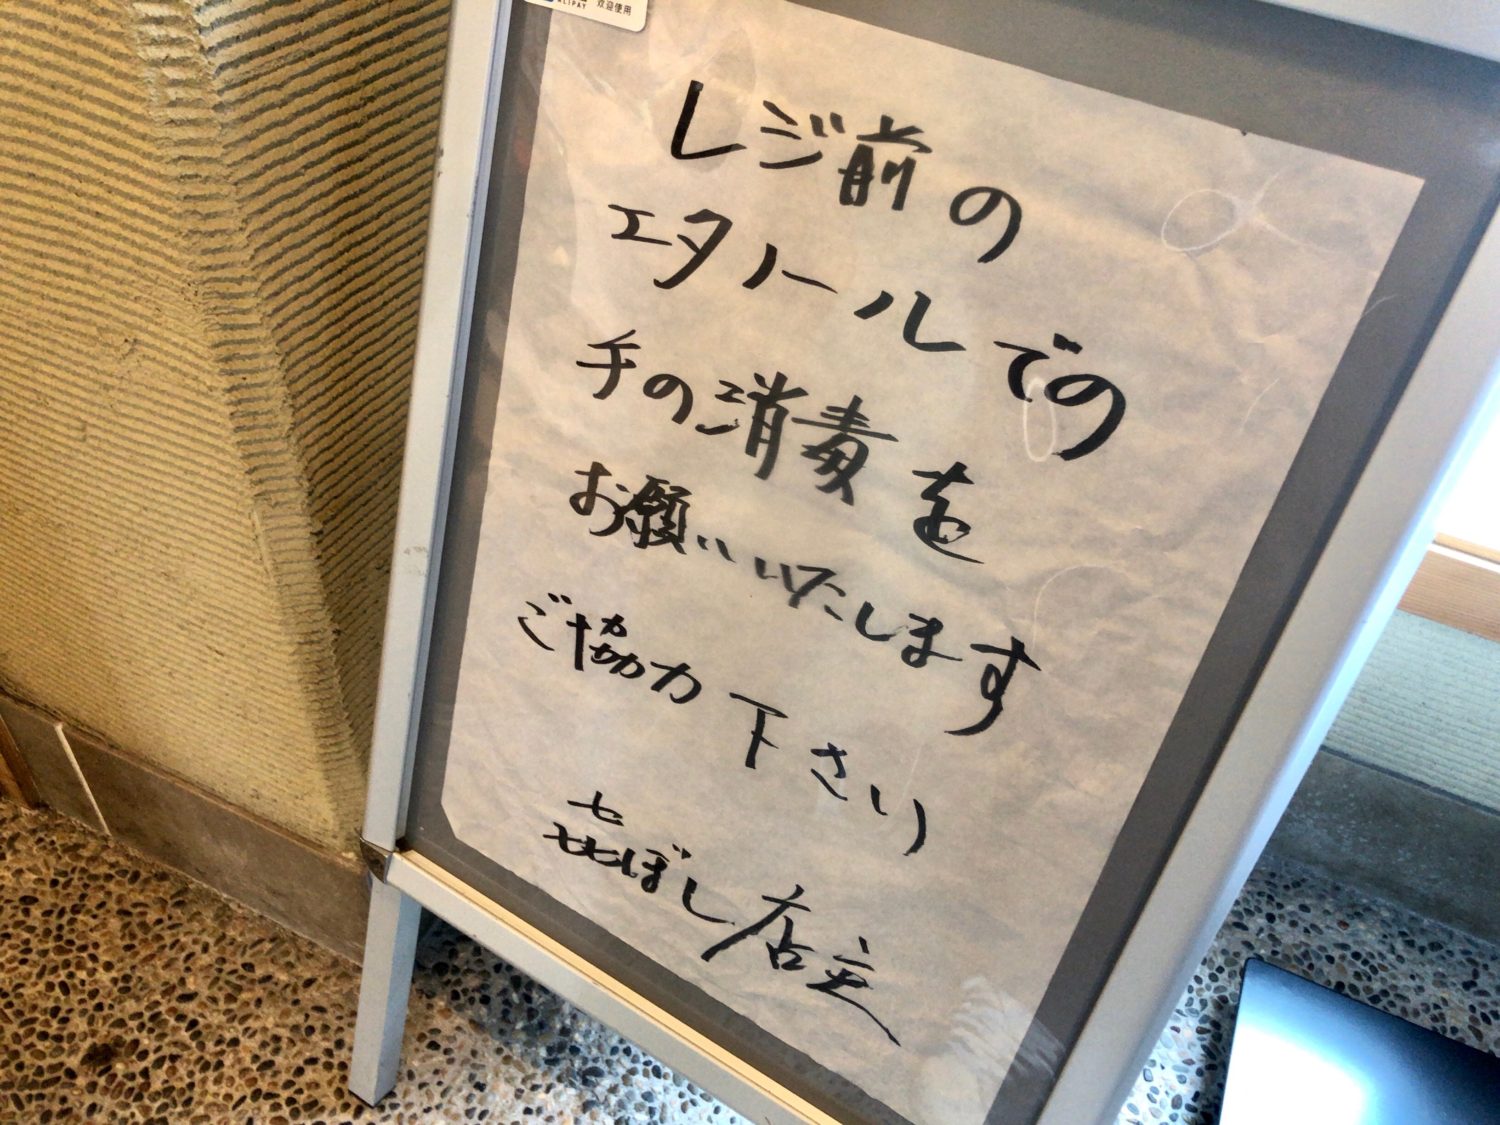 ALIPAY 欢迎使用
レジ前の
エタノールでの
手の消毒を
お願いいたします
ご協力下さい
㐂ぼし店主